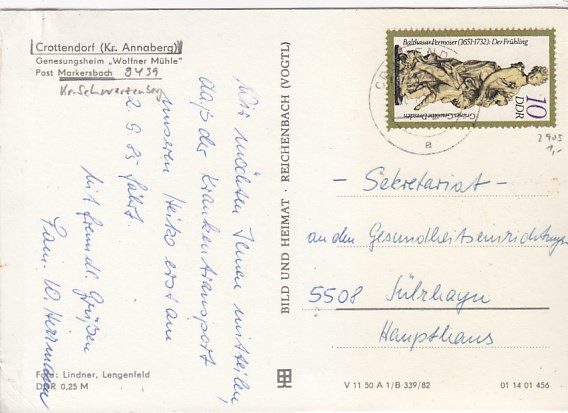 Crottendorf (Kr. Annaberg)
Genesungsheim „Wolfner Mühle"
Post Markersbach 9439
Kr. Schwarzenberg
Wir möchten Ihnen mitteilen,
daß der Krankentransport
unseren Heiko erst am
2.9.85 fährt.
Mit freundl. Grüßen
Fam. W. Herrmann
Foto: Lindner, Lengenfeld
DDR 0,25 M
BILD UND HEIMAT · REICHENBACH (VOGTL)
Balthasar Permoser (1651-1732): Der Frühling
Grünes Gewölbe Dresden
10
DDR
a
2905
1,-
- Sekretariat -
an den Gesundheitseinrichtungen
5508 Sülzhayn
Haupthaus
V 11 50 A 1/B 339/82
01 14 01 456